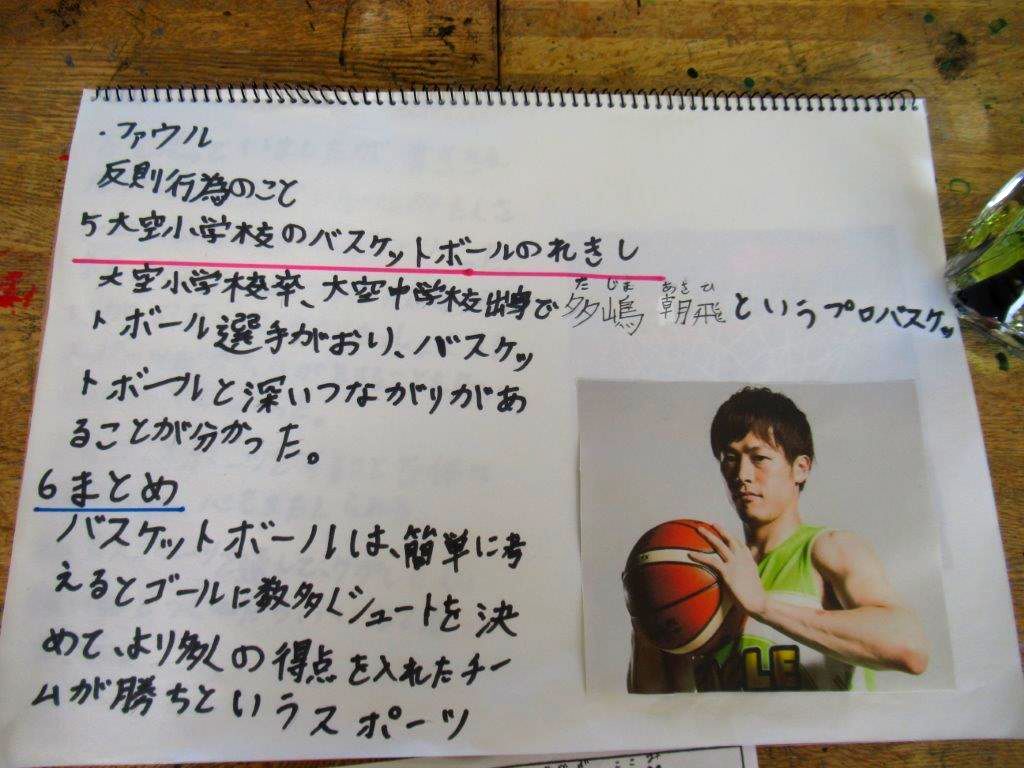 ・ファウル
反則行為のこと
5大空小学校のバスケットボールのれきし
大空小学校卒、大空中学校出身で多嶋 朝飛というプロバスケッ
たじま あさひ
トボール選手がおり、バスケッ
トボールと深いつながりがあ
ることが分かった。
6まとめ
バスケットボールは、簡単に考
えるとゴールに数多くシュートを決
めて、より多くの得点を入れたチー
ムが勝ちというスポーツ